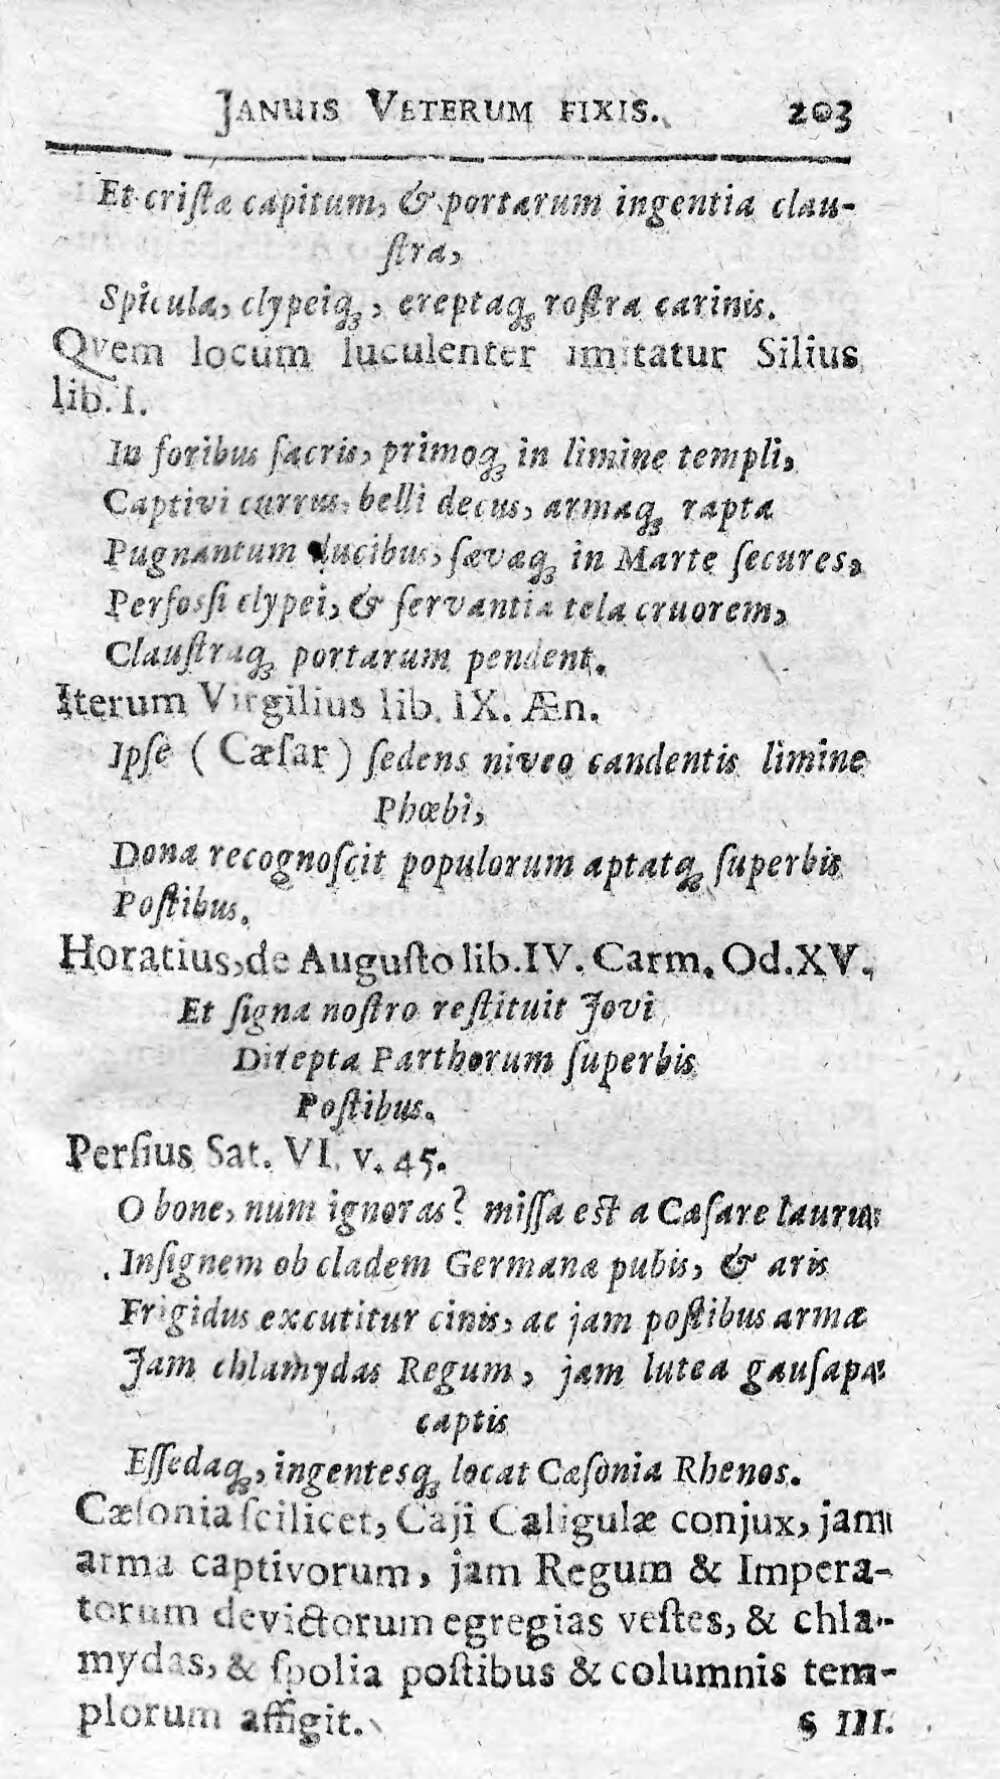 JANUIS VETERUM FIXIS. 203
Et cristæ capitum, & portarum ingentia clau-
stra,
Spicula, clypeiq;, ereptaq; rostra carinis.
Qvem locum luculenter imitatur Silius
lib. I.
In foribus sacris, primoq; in limine templi,
Captivi currus, belli decus, armaq; rapta
Pugnantum ducibus, sævaq; in Marte secures,
Perfossi clypei, & servantia tela cruorem,
Claustraq; portarum pendent.
Iterum Virgilius lib. IX. Æn.
Ipse (Cæsar) sedens niveo candentis limine
Phœbi,
Dona recognoscit populorum aptatq; superbis
Postibus.
Horatius, de Augusto lib. IV. Carm. Od. XV.
Et signa nostro restituit Jovi
Direpta Parthorum superbis
Postibus.
Persius Sat. VI. v. 45.
O bone, num ignoras? missa est a Cæsare laurus
Insignem ob cladem Germanæ pubis, & aris
Frigidus excutitur cinis, ac jam postibus arma
Jam chlamydas Regum, jam lutea gausapa
captis
Essedaq;, ingentesq; locat Cæsonia Rhenos.
Cæsonia scilicet, Caji Caligulæ conjux, jam
arma captivorum, jam Regum & Impera-
torum devictorum egregias vestes, & chla-
mydas, & spolia postibus & columnis tem-
plorum affigit.
§ III.